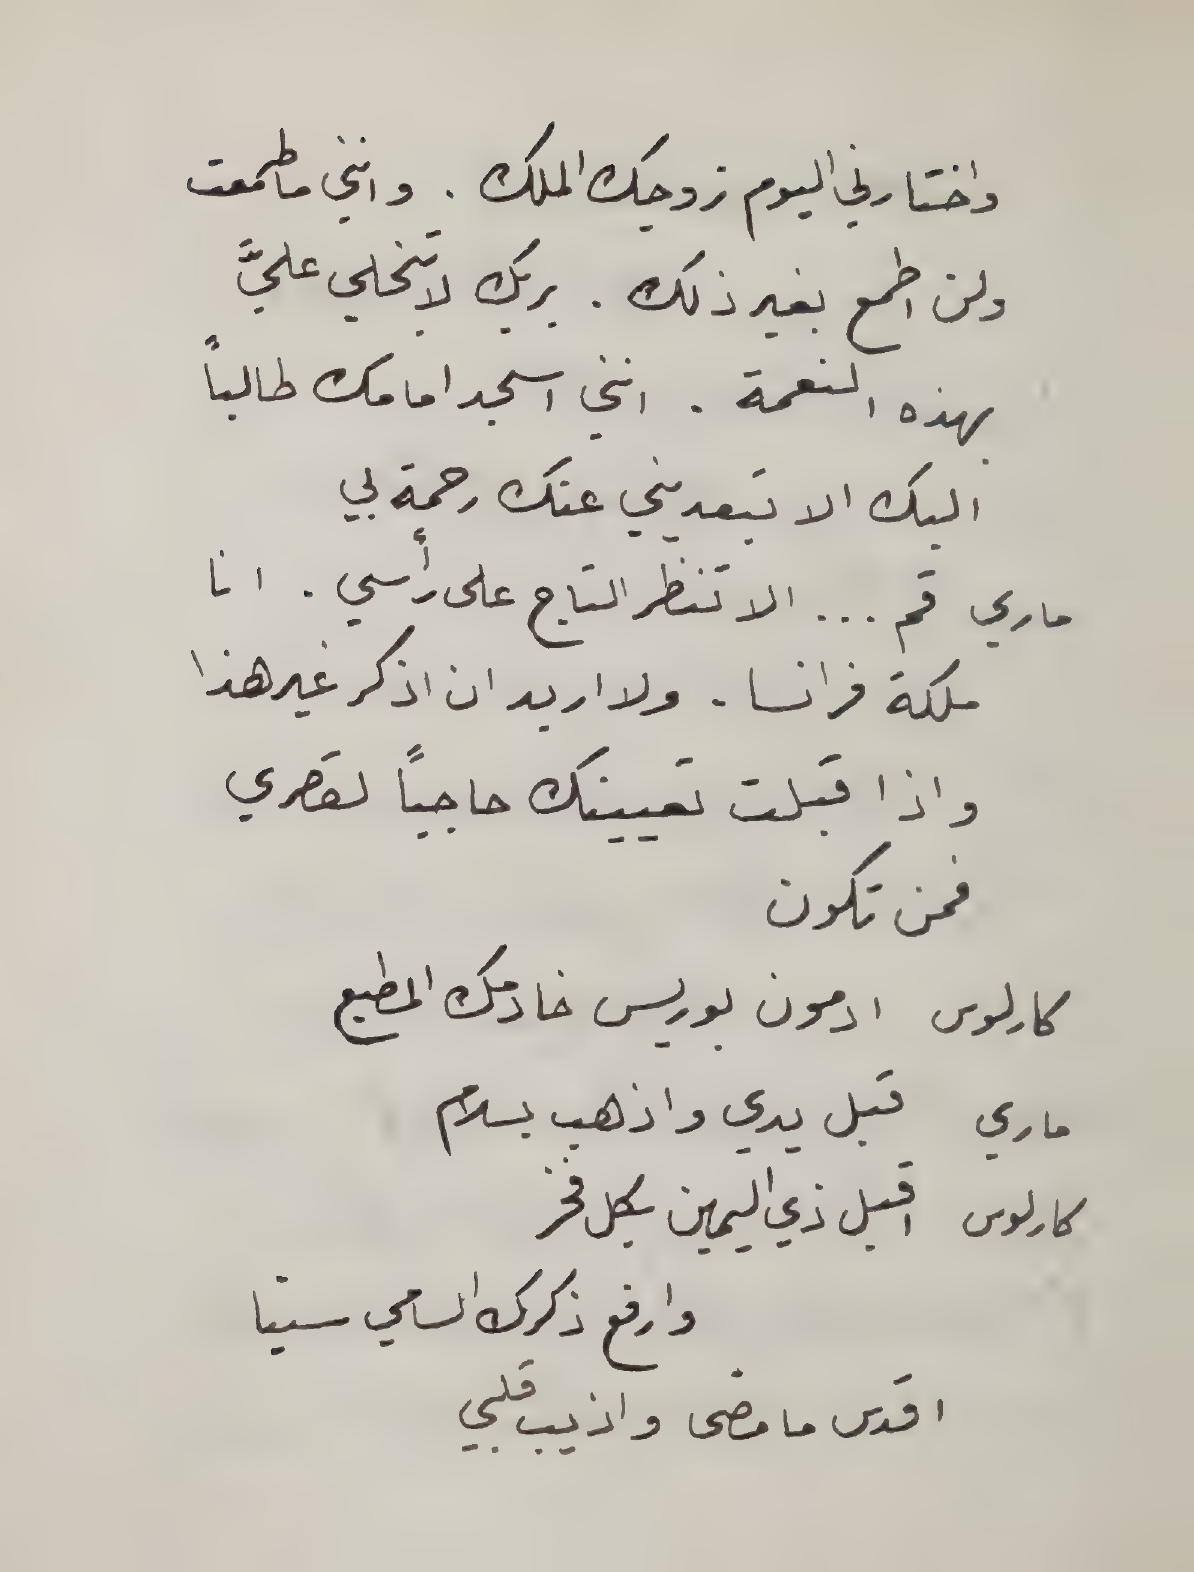 واختارني اليوم زوجك الملك . وانني ما طمعت
ولن اطمع بغير ذلك . بربك لا تبخلي عليَّ
بهذه النعمة . انني اسجد امامك طالباً
اليك الا تبعديني عنك رحمة بي
ماري قم ... الا تنظر التاج على رأسي . انا
ملكة فرانسا . ولا اريد ان اذكر غير هذا
واذا قبلت تعيينك حاجباً لقصري
فمن تكون
كارلوس ادمون بوريس خادمك المطيع
ماري قبل يدي واذهب بسلام
كارلوس اقبل ذي اليمين بكل فخر
وارفع ذكرك السامي
اقدس ما مضى واذيب قلبي